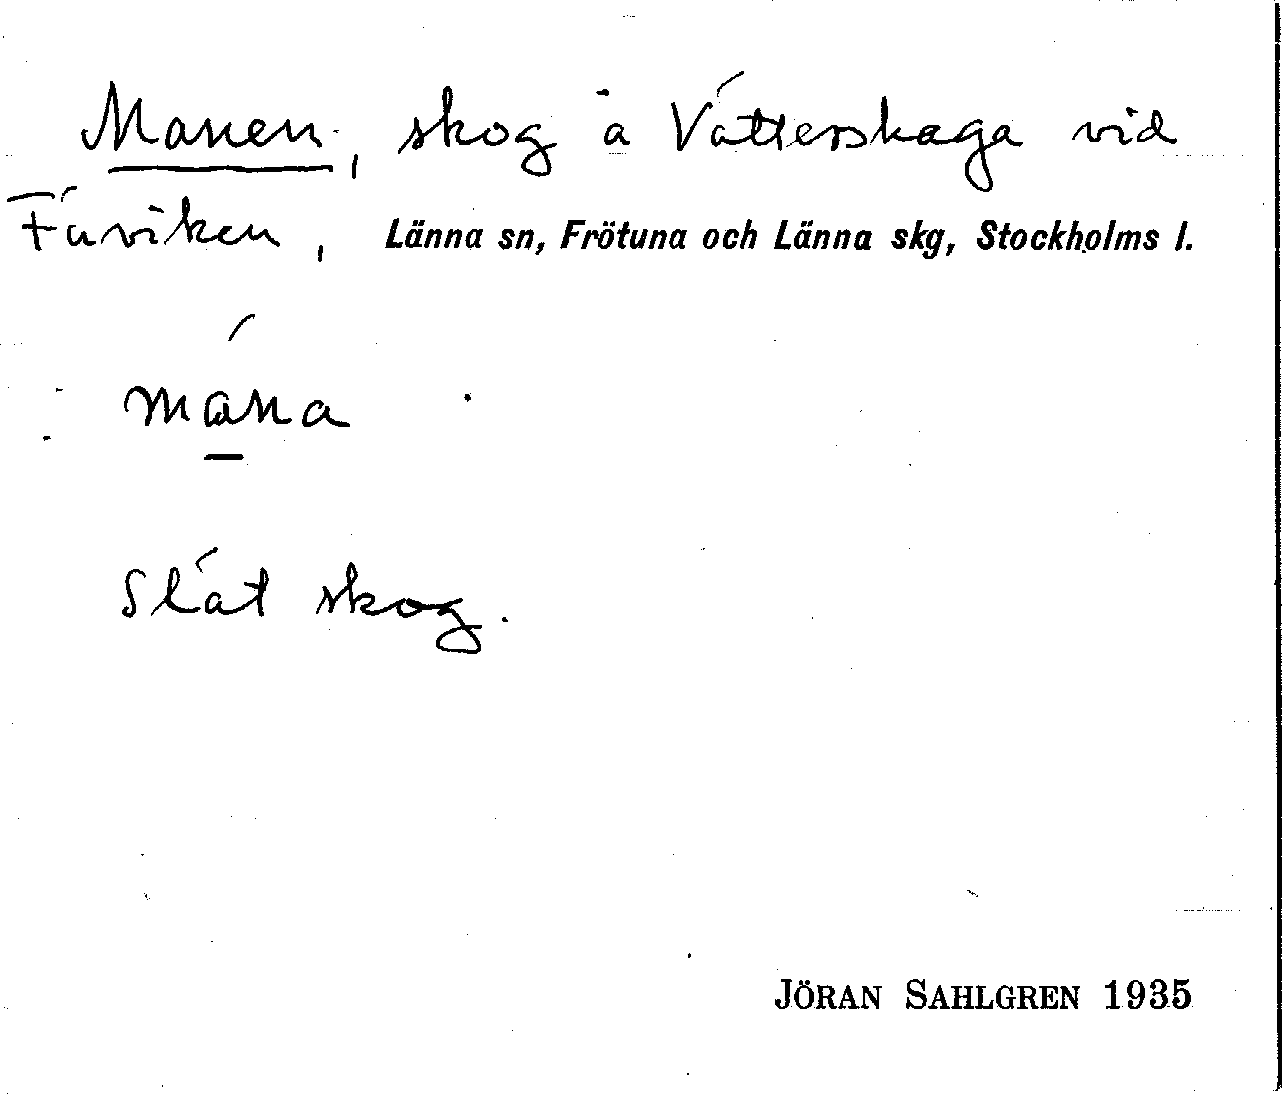 Manen, skog å Vätterskaga vid
Fäviken, Länna sn, Frötuna och Länna skg, Stockholms l.
mána
Slät skog.
JÖRAN SAHLGREN 1935